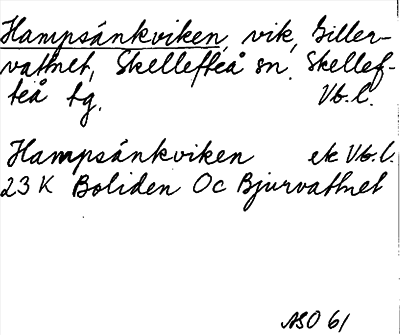 Hampsånkviken, vik, Giller-
vattnet, Skellefteå sn. Skellef-
teå tg. Vb.l.
Hampsånkviken ek Vb.l.
23 K Boliden Oc Bjurvattnet
NSO 61